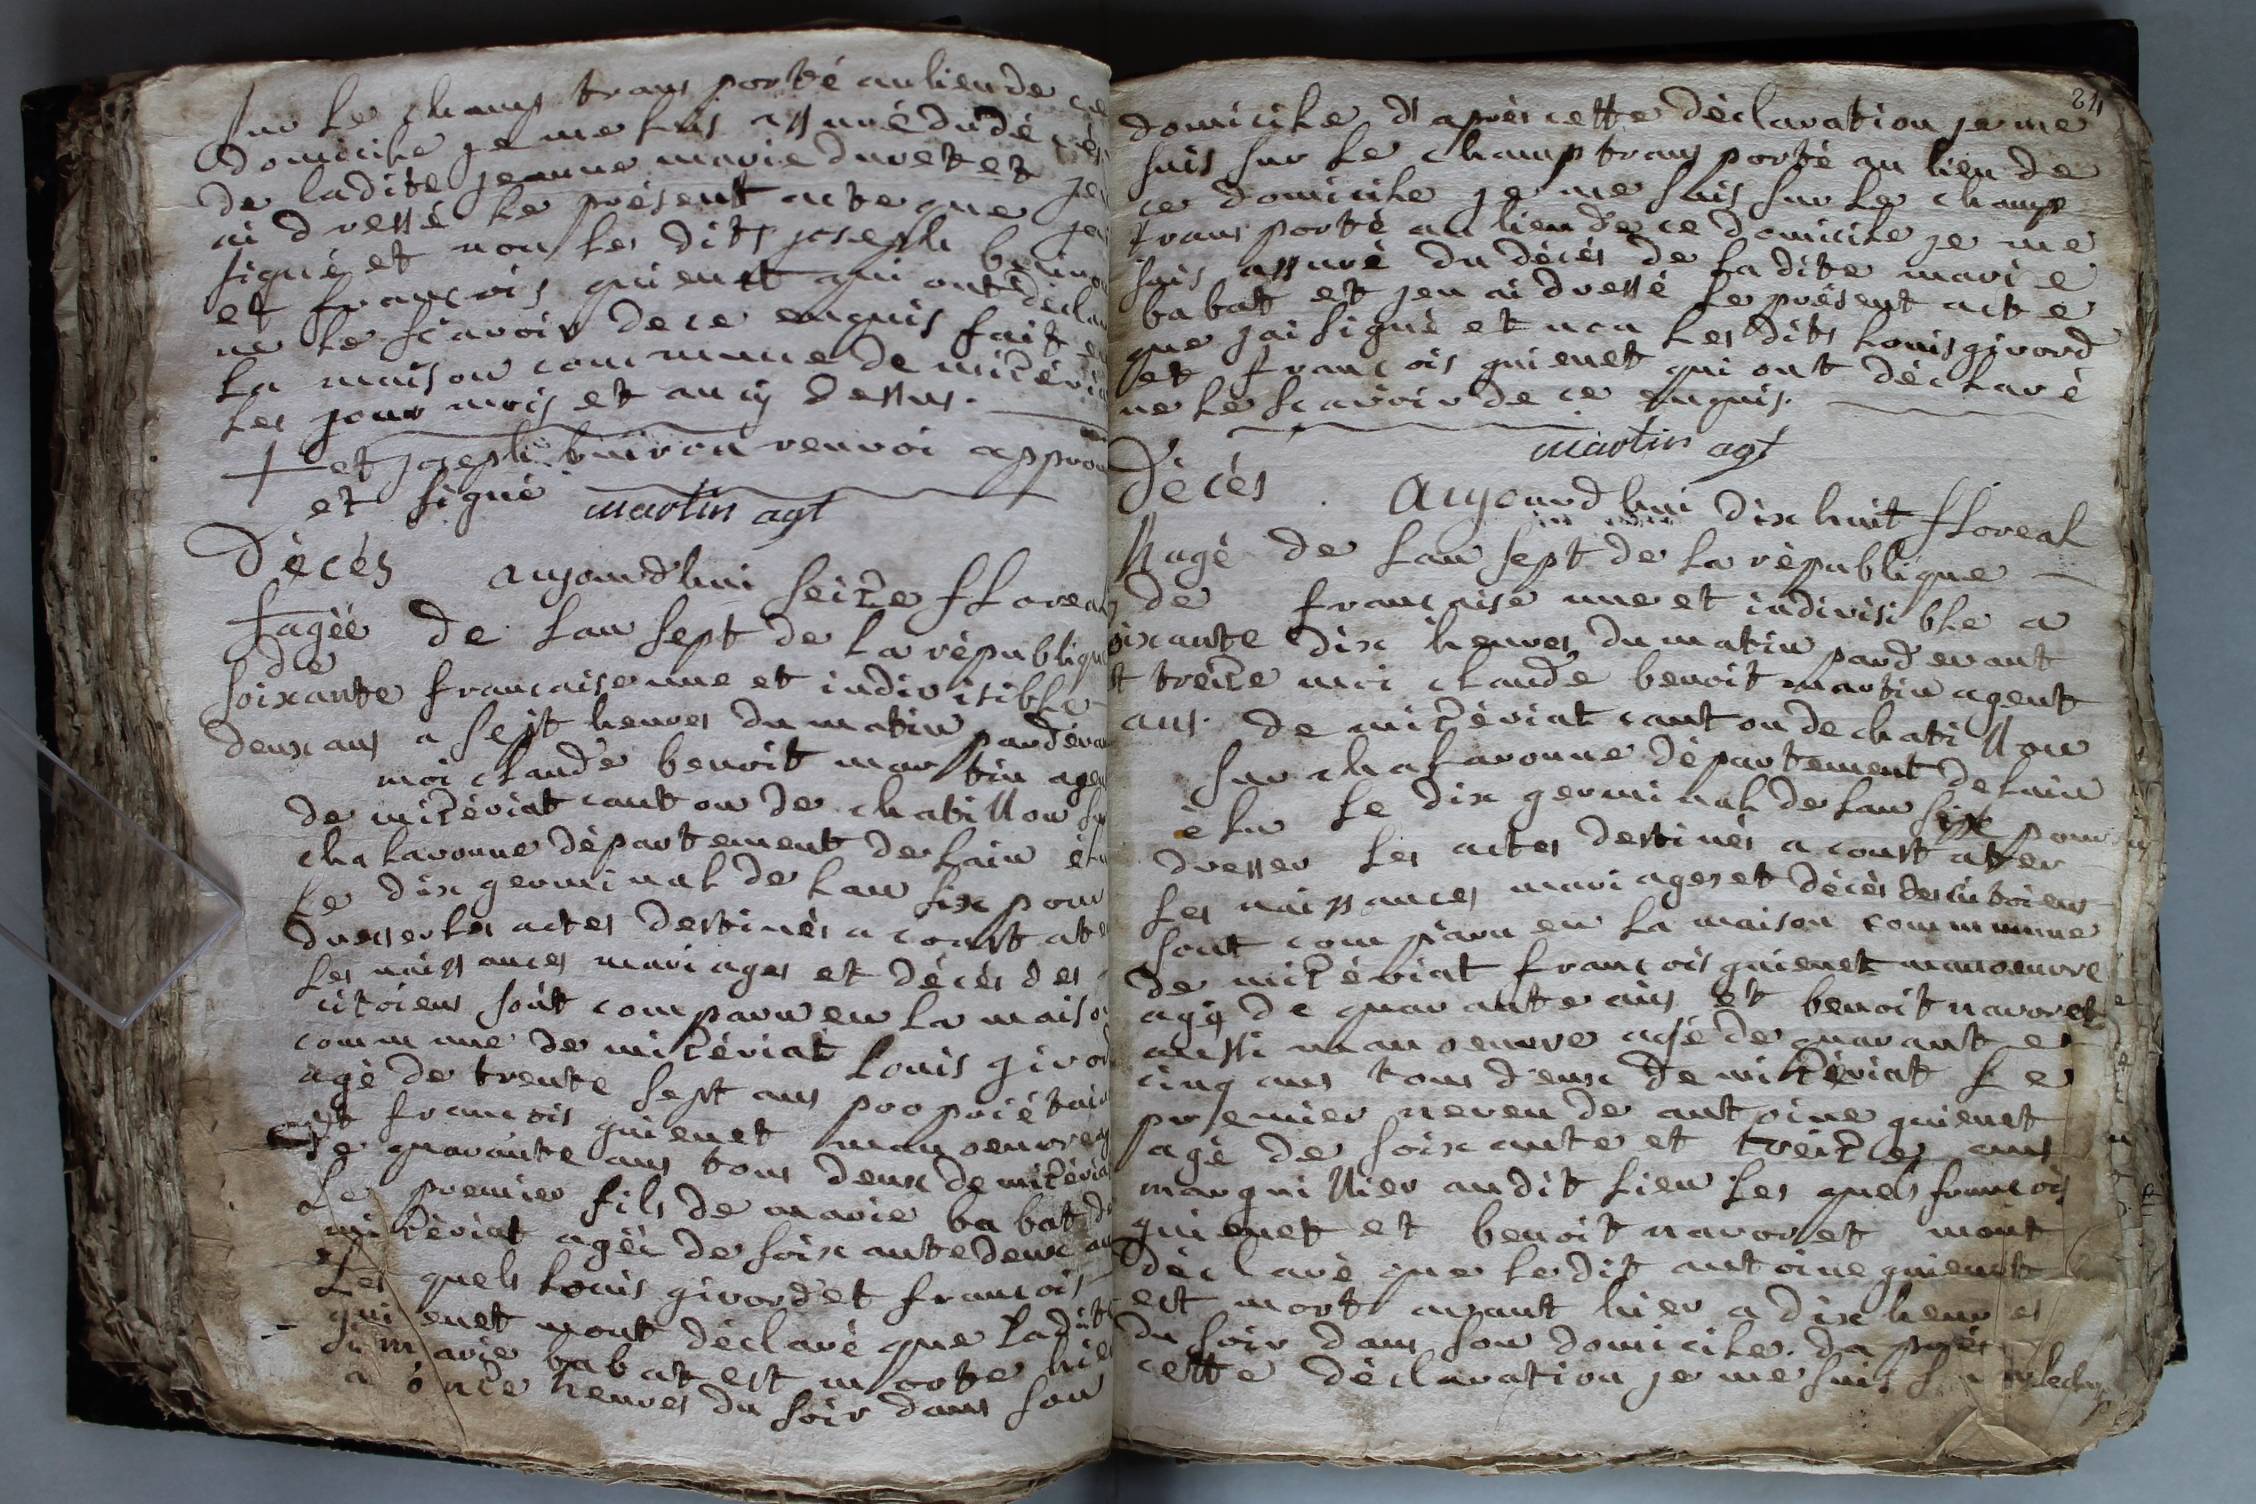 sur le champ transporté au lieu de ce
domicile je me suis assuré du décès
de ladite jeanne marie duret et jen
ai dressé le présent acte que jai
signé et non les dits joseph
et françois guienet qui ont déclaré
ne le scavoir de ce enquis fait en
la maison commune de mizériat
les jour mois et an cy dessus.
+ et joseph renvoi approuvé
et signé
martin agt
Décès aujourd'hui seize ffloreal
agée de lan sept de la république
de
soixante francaise une et indivisible
deux ans a sept heures du matin pardevant
moi claude benoit martin agent
de mizériat canton de chatillon sur
chalaronne département de lain élu
le dix germinal de lan six pour
dresser les actes destinés a constater
les naissances mariages et décès des
citoiens sont comparu en la maison
commune de mizériat louis girord
agé de trente sept ans propriétaire
et francois guienet manoeuvre agé
de quarante ans tous deux de mizériat
Le premier fils de marie babat de
mizériat agée de soixante deux ans
Les quels louis girord et francois
guienet mont déclaré que ladite
marie babat est morte hier
a onze heures du soir dans son
24
domicile d'après cette déclaration je me
suis sur le champ transporté au lieu de
ce domicile je me suis sur le champ
transporté au lieu de ce domicile je me
suis assuré du décès de ladite marie
babat et jen ai dressé le présent acte
que jai signé et non les dits louis girord
et francois guienet qui ont déclaré
ne le scavoir de ce enquis.
martin agt
Décès. Aujourdhui dix huit ffloreal
agé de lan sept de la république
de francaise une et indivisible a
soixante dix heures du matin pardevant
et treize moi claude benoit martin agent
ans. de mizériat canton de chatillon
sur chalaronne département de lain
élu le dix germinal de lan six pour
dresser les actes destinés a constater
les naissances mariages et décès des citoiens
sont comparu en la maison commmune
de mizériat francois guienet manoeuvre
agé de quarante ans et benoit navoret
aussi manoeuvre agé de quarante
cinq ans tous deux de mizériat Le
premier neveu de antoine guienet
agé de soixante et treize ans
marguillier audit lieu Les quels francois
guienet et benoit navoret mont
déclaré que ledit antoine guienet
est mort avant hier a dix heures
du soir dans son domicile. daprès
cette déclaration je me suis sur le champ